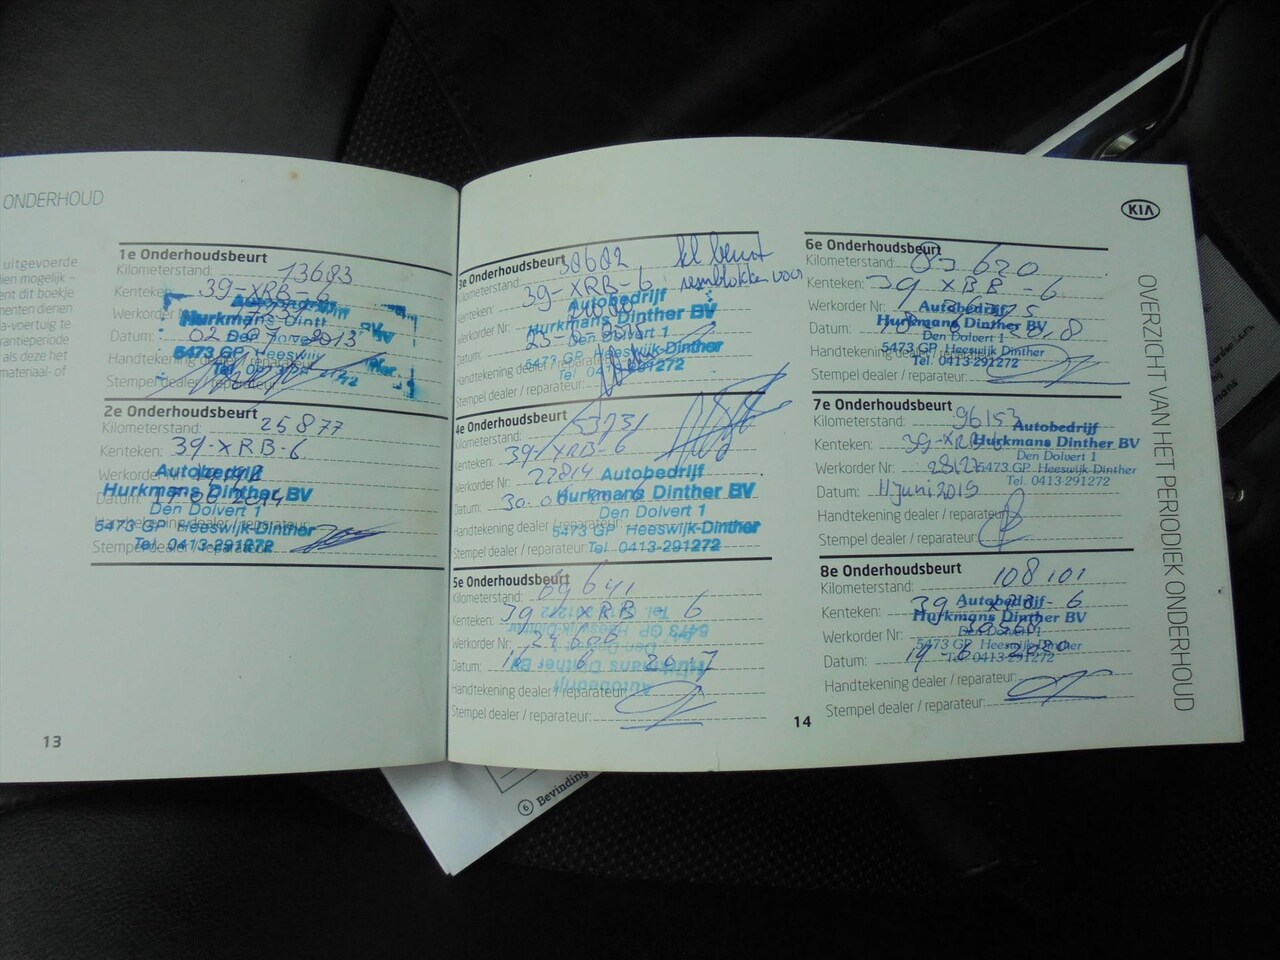 ONDERHOUD
uitgevoerde
lien mogelijk –
ent dit boekje
menten dienen
a-voertuig te
rantieperiode
als deze het
materiaal- of
1e Onderhoudsbeurt
Kilometerstand: 13683
Kenteken: 39-XRB-6
Werkorder Nr:
Datum: 02 2013
Handtekening dealer / reparateur:
Stempel dealer / reparateur:
Hurkmans Dinth
5473 GP Heeswijk
2e Onderhoudsbeurt
Kilometerstand: 25877
Kenteken: 39-XRB-6
Werkorder Nr:
Datum: 17 06 2014
Handtekening dealer / reparateur:
Stempel dealer / reparateur:
Autobedrijf
Hurkmans Dinther BV
Den Dolvert 1
5473 GP Heeswijk-Dinther
Tel. 0413-291272
13
3e Onderhoudsbeurt
Kilometerstand: 38682 kl beurt
Kenteken: 39-XRB-6 remblokken voor
Werkorder Nr:
Datum: 2015
Handtekening dealer / reparateur:
Stempel dealer / reparateur:
Autobedrijf
Hurkmans Dinther BV
Den Dolvert 1
5473 GP Heeswijk-Dinther
Tel. 0413-291272
4e Onderhoudsbeurt
Kilometerstand: 53731
Kenteken: 39-XRB-6
Werkorder Nr: 22814
Datum: 30.
Handtekening dealer / reparateur:
Stempel dealer / reparateur:
Autobedrijf
Hurkmans Dinther BV
Den Dolvert 1
5473 GP Heeswijk-Dinther
Tel. 0413-291272
5e Onderhoudsbeurt
Kilometerstand: 69641
Kenteken: 39 XRB 6
Werkorder Nr: 24606
Datum: 6
Handtekening dealer / reparateur:
Stempel dealer / reparateur:
Autobedrijf
Hurkmans Dinther BV
Den Dolvert 1
5473 GP Heeswijk-Dinther
Tel. 0413-291272
KIA
6e Onderhoudsbeurt
Kilometerstand: 83 620
Kenteken: 39 XRB-6
Werkorder Nr:
Datum:
Handtekening dealer / reparateur:
Stempel dealer / reparateur:
Autobedrijf
Hurkmans Dinther BV
Den Dolvert 1
5473 GP Heeswijk Dinther
Tel. 0413-291272
7e Onderhoudsbeurt
Kilometerstand: 96153
Kenteken: 39-XRB-6
Werkorder Nr: 28127
Datum: 11 Juni 2019
Handtekening dealer / reparateur:
Stempel dealer / reparateur:
Autobedrijf
Hurkmans Dinther BV
Den Dolvert 1
5473 GP Heeswijk Dinther
Tel. 0413-291272
8e Onderhoudsbeurt
Kilometerstand: 108 101
Kenteken: 39-XRB-6
Werkorder Nr:
Datum: 19-6 2020
Handtekening dealer / reparateur:
Stempel dealer / reparateur:
Autobedrijf
Hurkmans Dinther BV
Den Dolvert 1
5473 GP Heeswijk Dinther
Tel. 0413-291272
14
OVERZICHT VAN HET PERIODIEK ONDERHOUD
6 Bevinding